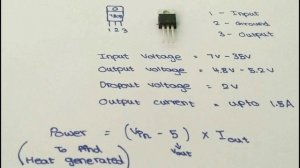 7805
1 2 3
1 - Input
2 - Ground
3 - Output
Input Voltage = 7v - 35v
Output voltage = 4.8v - 5.2v
Dropout voltage = 2v
Output current = upto 1.5A
Power = (Vin - 5) x Iout
Vout
(To find
Heat generated)